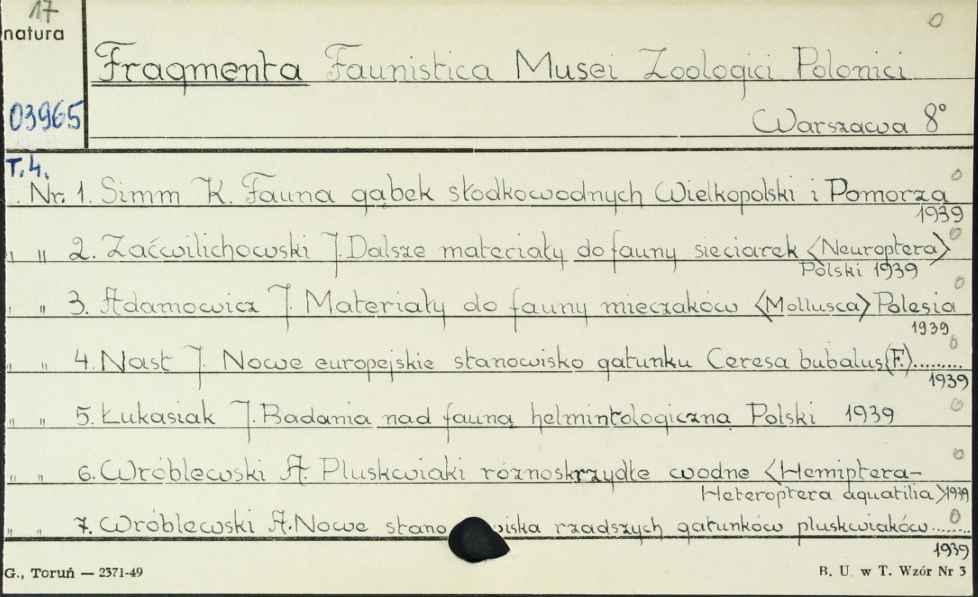 17
natura
03965
Fragmenta Faunistica Musei Zoologici Polonici
Warszawa 8°
T.4.
Nr. 1. Simm K. Fauna gąbek słodkowodnych Wielkopolski i Pomorza
1939
" " 2. Zaćwilichowski J. Dalsze materiały do fauny sieciarek <Neuroptera>
Polski 1939
" " 3. Adamowicz J. Materiały do fauny mięczaków <Mollusca> Polesia
1939
" " 4. Nast J. Nowe europejskie stanowisko gatunku Ceresa bubalus (F.).........
1939
" " 5. Łukasiak J. Badania nad fauną helmintologiczną Polski 1939
" " 6. Wróblewski A. Pluskwiaki różnoskrzydłe wodne <Hemiptera-
Heteroptera aquatilia> 1939
" " 7. Wróblewski A. Nowe stanowiska rzadszych gatunków pluskwiaków.......
1939
G., Toruń — 2371-49
B. U. w T. Wzór Nr 3